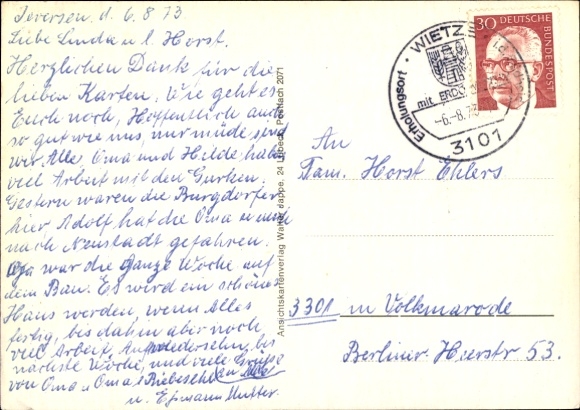 Jeversen d. 6.8.73
Liebe Linda u. l. Horst.
Herzlichen Dank für die
lieben Karten, Wie geht es
Euch noch, Hoffentlich auch
so gut wie uns, nur müde sind
wir Alle, Oma und Hilde, haben
viel Arbeit mit den Gurken.
Gestern waren die Burgdorfer
hier Adolf hat die Oma u mich
nach Neustadt gefahren.
Opa war die ganze Woche auf
dem Bau. Es wird ein schönes
Haus werden, wenn Alles
fertig, bis dahin aber noch
viel Arbeit, Aufwiedersehn, bis
nächste Woche, und viele Grüße
von Oma u Opa
u. Mutter
Ansichtskartenverlag 24 Lübeck, Postfach 2071
Erholungsort · WIETZE
mit ERDÖL
-6.-8.73
3101
30 DEUTSCHE
BUNDESPOST
An
Fam. Horst Ehlers
3301 in Volkmarode
Berliner Heerstr 53.